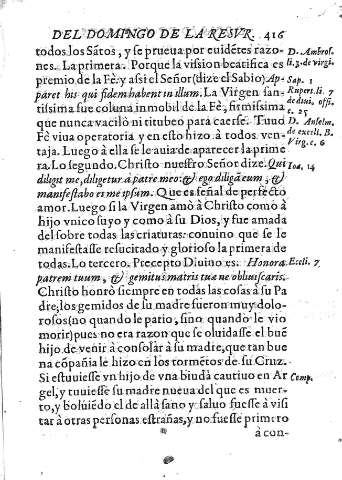 DEL DOMINGO DE LA RESVR. 416
todos los Sãtos, y se prueua por euidẽtes razo-
nes. La primera. Porque la vission beatifica es
premio de la Fè: y assi el Señor (dize el Sabio) Ap-
paret his qui fidem habent in illum. La Virgen san-
tissima fue coluna inmobil de la Fè, firmissima
que nunca vaciló ni titubeò para caerse. Tuuo
Fè viua operatoria y en esto hizo à todos ven-
taja. Luego à ella se le auia de aparecer la prime
ra. Lo segundo. Christo nuestro Señor dize. Qui
diligit me, diligetur à patre meo: & ego diligã eum, &
manifestabo ei me ipsum. Que es señal de perfecto
amor. Luego si la Virgen amò à Christo como à
hijo vnico suyo y como à su Dios, y fue amada
del sobre todas las criaturas: conuino que se le
manifestasse resucitado y glorioso la primera de
todas. Lo tercero. Precepto Diuino es. Honora
patrem tuum, & gemitus matris tuæ ne obliuiscaris.
Christo honrò siempre en todas las cosas à su Pa
dre, los gemidos de su madre fueron muy dolo-
rosos (no quando le pario, sino quando le vio
morir) pues no era razon que se oluidasse el buẽ
hijo de venir à consolar à su madre, que tan bue
na cõpañia le hizo en los tormẽtos de su Cruz.
Si estuuiesse vn hijo de vna biuda cautiuo en Ar
gel, y tuuiesse su madre nueua del que es muer-
to, y boluiẽdo el de allà sano y saluo fuesse à visi
tar à otras personas estrañas, y no fuesse primero
à con-
D. Ambros.
li. 3. de virgi.
Sap. 1
Rupert. li. 7
de diui. offi.
c. 25
D. Anselm.
de excell. B.
Virg. c. 6
Ioa. 14
Eccli. 7
Comp.